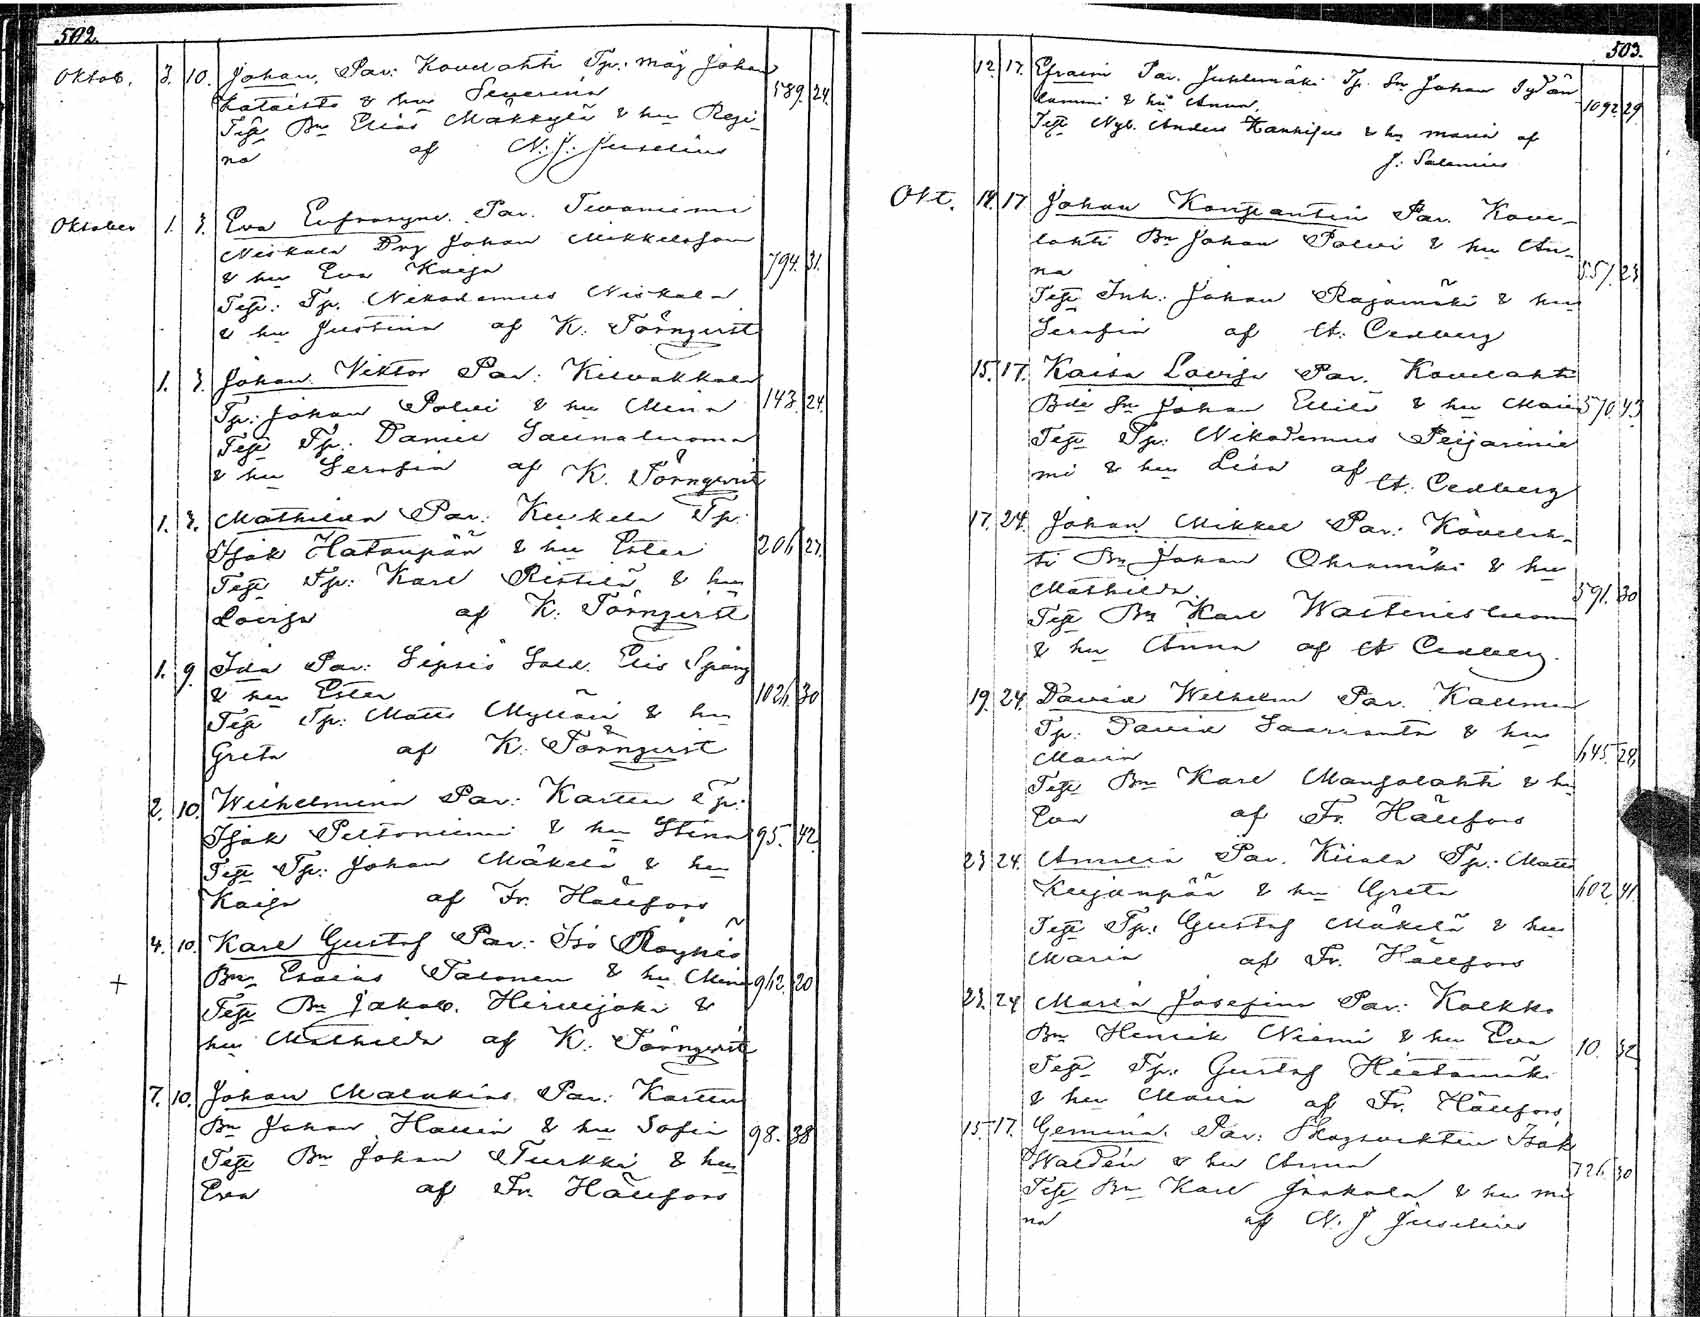 502.
Oktob. 3. 10. Johan. Par: Kovelahti Tp. måg Johan
Kataisto & hu Severina 589. 24.
Test Bn Elias Mäkkylä & hu Regi-
na af N. J. Juselius
Oktober 1. 3. Eva Eufrosyne. Par. Tevaniemi
Niskala Drg Johan Mikkelsson
& hu Eva Kaisa 794. 31.
Test: Tp. Nikodemus Niskala
& hu Justina af K. Törnqvist
1. 3. Johan Viktor Par: Kilvakkala
Tp: Johan Polvi & hu Mina 143. 24.
Test Tp. Daniel Saunaluoma
& hu Serafia af K. Törnqvist
1. 3. Mathilda Par: Keikela Tp:
Isak Hatanpää & hu Ester 206 27.
Test Tp: Karl Ristilä & hu
Lovisa af K. Törnqvist
1. 9. Ida Par: Sipsiö Sold. Elis Spång
& hu Ester 1026. 30
Test Tp: Matts Myllari & hu
Greta af K. Törnqvist
2. 10. Wilhelmina Par: Karttu Tp:
Isak Peltoniemi & hu Stina 95. 42.
Test Tp: Johan Mäkelä & hu
Kaisa af Fr. Hällfors
4. 10. Karl Gustaf Par: Iso Röyhiö
+ Bn Esaias Talonen & hu Mina 962. 20
Test Bn Jakob. Hirvijoki &
hu Mathilda af K. Törnqvist
7. 10. Johan Malakias. Par: Karttu
Bn Johan Hallin & hu Sofia 98. 38
Test Bn Johan Turkki & hu
Eva af Fr. Hällfors
503.
12. 17. Efraim Par. Juhtimäki Tp. Sn Johan Sydän
lammi & hu Anna. 1092. 29.
Test Nyb. Anders Kankijus & hu Maria af
J. Salenius
Okt. 14. 17 Johan Konstantin Par. Kove-
lahti Bn Johan Polvi & hu An-
na 557. 23
Test Inh: Johan Rajamäki & hu
Serafia af A. Cedberg
15. 17. Kaisa Lovisa Par. Kovelahti
Bde Sn Johan Ellilä & hu Maria 570. 43
Test Tp: Nikodemus Peijarinie
mi & hu Lisa af A. Cedberg
17. 24. Johan Mikkel Par: Kovelah-
ti Bn Johan Ohramäki & hu
Mathilda. 591. 30
Test Bn Karl Wastinisluoma
& hu Anna af A Cedberg.
19. 24. David Wilhelm Par. Kallmaa
Tp: David Saariaata & hu
Maria 645. 24.
Test Bn Karl Mansolahti & hu
Eva af Fr. Hällfors
23 24. Amalia Par. Kiiala Tp: Matts
Kujanpää & hu Greta 602. 41.
Test Tp: Gustaf Mäkelä & hu
Maria af Fr. Hällfors
23. 24 Maria Josefina Par: Kolkko
Bn Henrik Niemi & hu Eva 10. 32
Test Tp: Gustaf Hietamäki
& hu Maria af Fr. Hällfors
15. 17. Gemina. Par: Skogsvaktin Isak
Waldén & hu Anna 726. 30
Test Bn Karl Jaakala & hu Mi
na af N. J Juselius